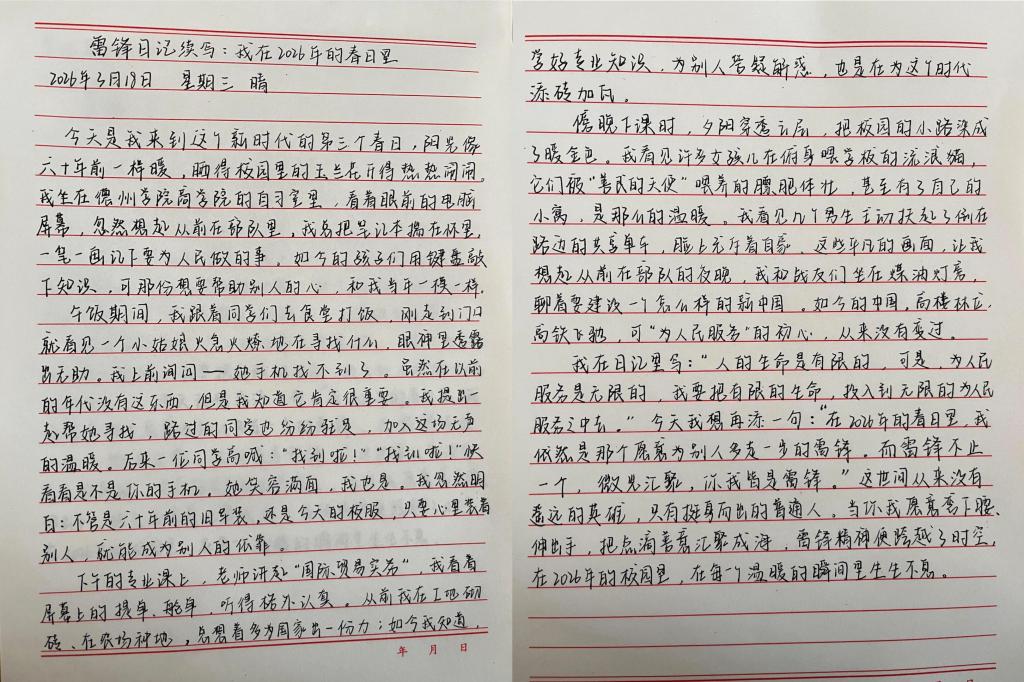 雷锋日记续写：我在2026年的春日里
2026年3月18日 星期三 晴
今天是我来到这个新时代的第三个春日，阳光像
六十年前一样暖，晒得校园里的玉兰花开得热热闹闹。
我坐在德州学院商学院的自习室里，看着眼前的电脑
屏幕，忽然想起从前在部队里，我总把笔记本揣在怀里，
一笔一画记下要为人民做的事。如今的孩子们用键盘敲
下知识，可那份想要帮助别人的心，和我当年一模一样。
午饭期间，我跟着同学们去食堂打饭，刚走到门口
就看见一个小姑娘火急火燎地在寻找什么，眼神里透露
出无助。我上前询问——她手机找不到了。虽然在以前
的年代没有这东西，但是我知道它肯定很重要。我提出一
起帮她寻找，路过的同学也纷纷驻足，加入这场无声
的温暖。后来一位同学高喊：“找到啦！”“找到啦！”快
看看是不是你的手机。她笑容满面，我也是。我忽然明
白：不管是六十年前的旧军装，还是今天的校服，只要心里装着
别人，就能成为别人的依靠。
下午的专业课上，老师讲起“国际贸易实务”，我看着
屏幕上的提单、舱单，听得格外认真。从前我在工地砌
砖、在农场种地，总想着多为国家出一份力；如今我知道，
年 月 日
学好专业知识，为别人答疑解惑，也是在为这个时代
添砖加瓦。
傍晚下课时，夕阳穿透云层，把校园的小路染成
了暖金色。我看见许多女孩儿在俯身喂学校的流浪猫，
它们被“善良的天使”喂养的膘肥体壮，甚至有了自己的
小窝，是那么的温暖。我看见几个男生主动扶起了倒在
路边的共享单车，脸上充斥着自豪。这些平凡的画面，让我
想起从前在部队的夜晚，我和战友们坐在煤油灯旁，
聊着要建设一个怎么样的新中国。如今的中国，高楼林立，
高铁飞驰，可“为人民服务”的初心，从来没有变过。
我在日记里写：“人的生命是有限的，可是，为人民
服务是无限的，我要把有限的生命，投入到无限的为人民
服务之中去。”今天我想再添一句：“在2026年的春日里，我
依然是那个愿意为别人多走一步的雷锋。而雷锋不止
一个，微光汇聚，你我皆是雷锋。”这世间从来没有
遥远的英雄，只有挺身而出的普通人。当你我愿意弯下腰、
伸出手，把点滴善意汇聚成海，雷锋精神便跨越了时空，
在2026年的校园里，在每个温暖的瞬间里生生不息。